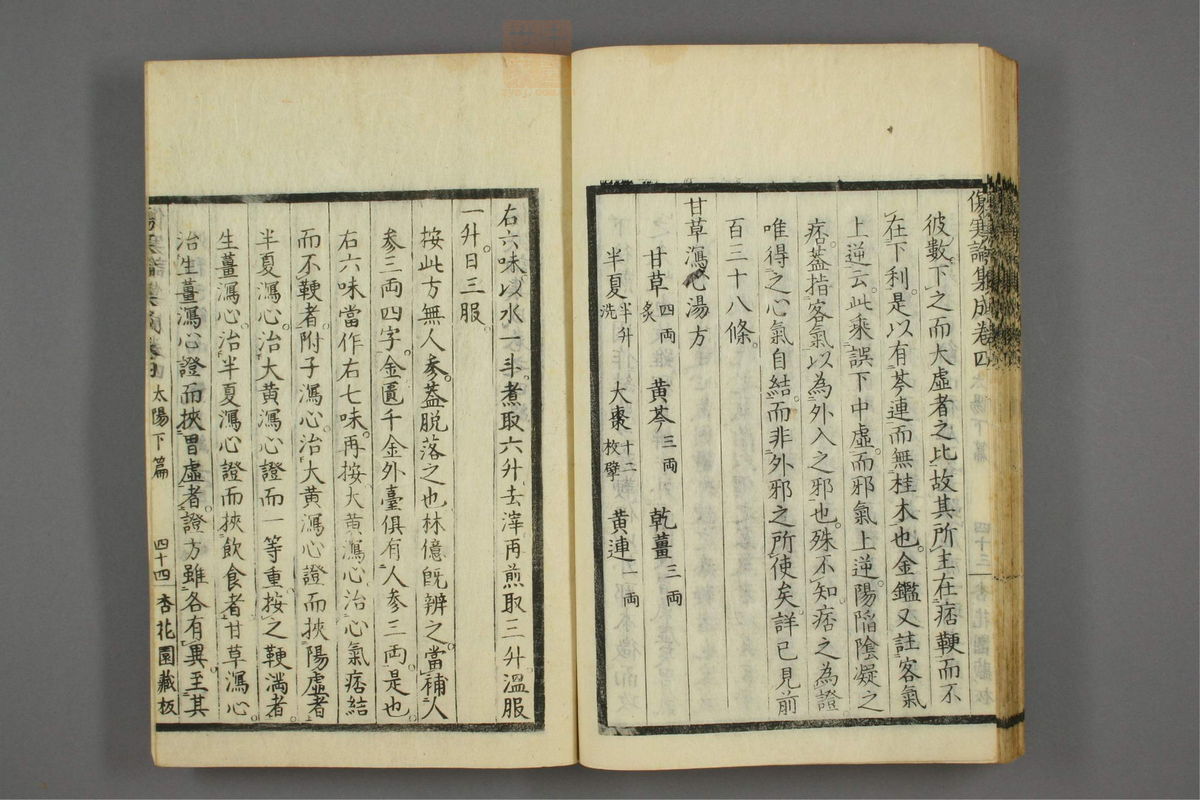 傷寒論集成卷四
彼數下之而大虛者之比故其所主在痞鞕而不
在下利是以有芩連而無桂木也金鑑又註客氣
上逆云此乘誤下中虛而邪氣上逆陽陷陰凝之
痞蓋指客氣以為外入之邪也殊不知痞之為證
唯得之心氣自結而非外邪之所使矣詳已見前
百三十八條
甘草瀉心湯方
甘草四両炙 黄芩三両 乾薑三両
半夏半升洗 大棗十二枚擘 黄連一両
右六味以水一斗煮取六升去滓再煎取三升溫服
一升日三服
按此方無人參蓋脱落之也林億既辨之當補人
參三両四字金匱千金外臺俱有人參三両是也
右六味當作右七味再按大黄瀉心治心氣痞結
而不鞕者附子瀉心治大黄瀉心證而挾陽虛者
半夏瀉心治大黄瀉心證而一等重按之鞕滿者
生薑瀉心治半夏瀉心證而挾飲食者甘草瀉心
治生薑瀉心證而挾胃虛者證方雖各有異至其
太陽下篇 四十四 杏花園藏板